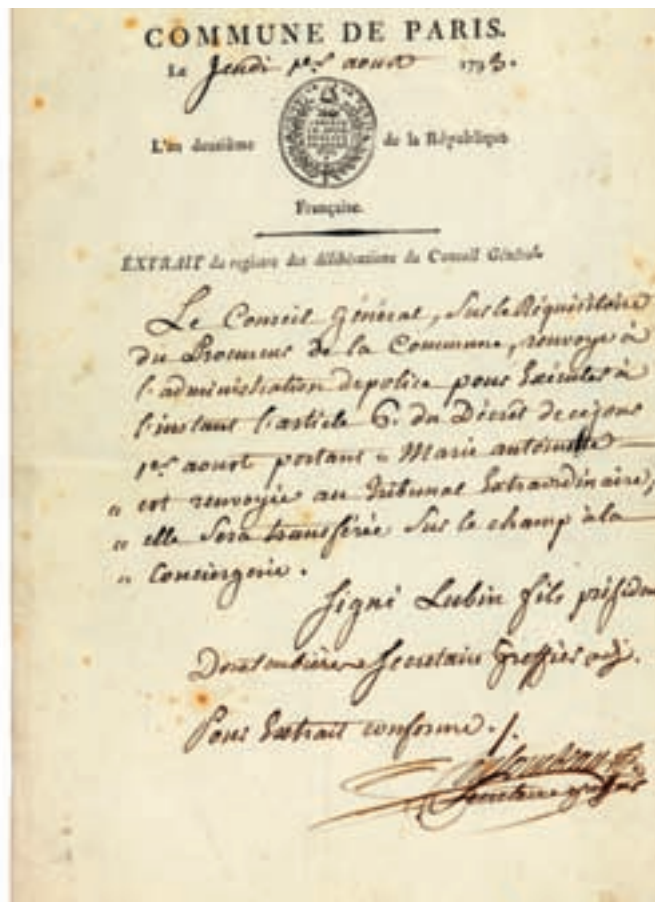 COMMUNE DE PARIS.
Le Jeudi 1er aoust 1793.
L'an deuxième de la République
Française.
EXTRAIT du registre des délibérations du Conseil Général
Le Conseil général, Sur le Réquisitoire
du Procureur de la Commune, renvoye à
l'administration de police pour Exécuter à
l'instant l'article 6. du Décret de ce jour
1er aoust portant " Marie antoinette
" est renvoyée au Tribunal Extraordinaire,
" elle Sera transférée Sur le champ à la
" Conciergerie.
Signé Lubin fils président
Secretaire Greffier adj.
Pour Extrait conforme ./.
Secretaire greffier